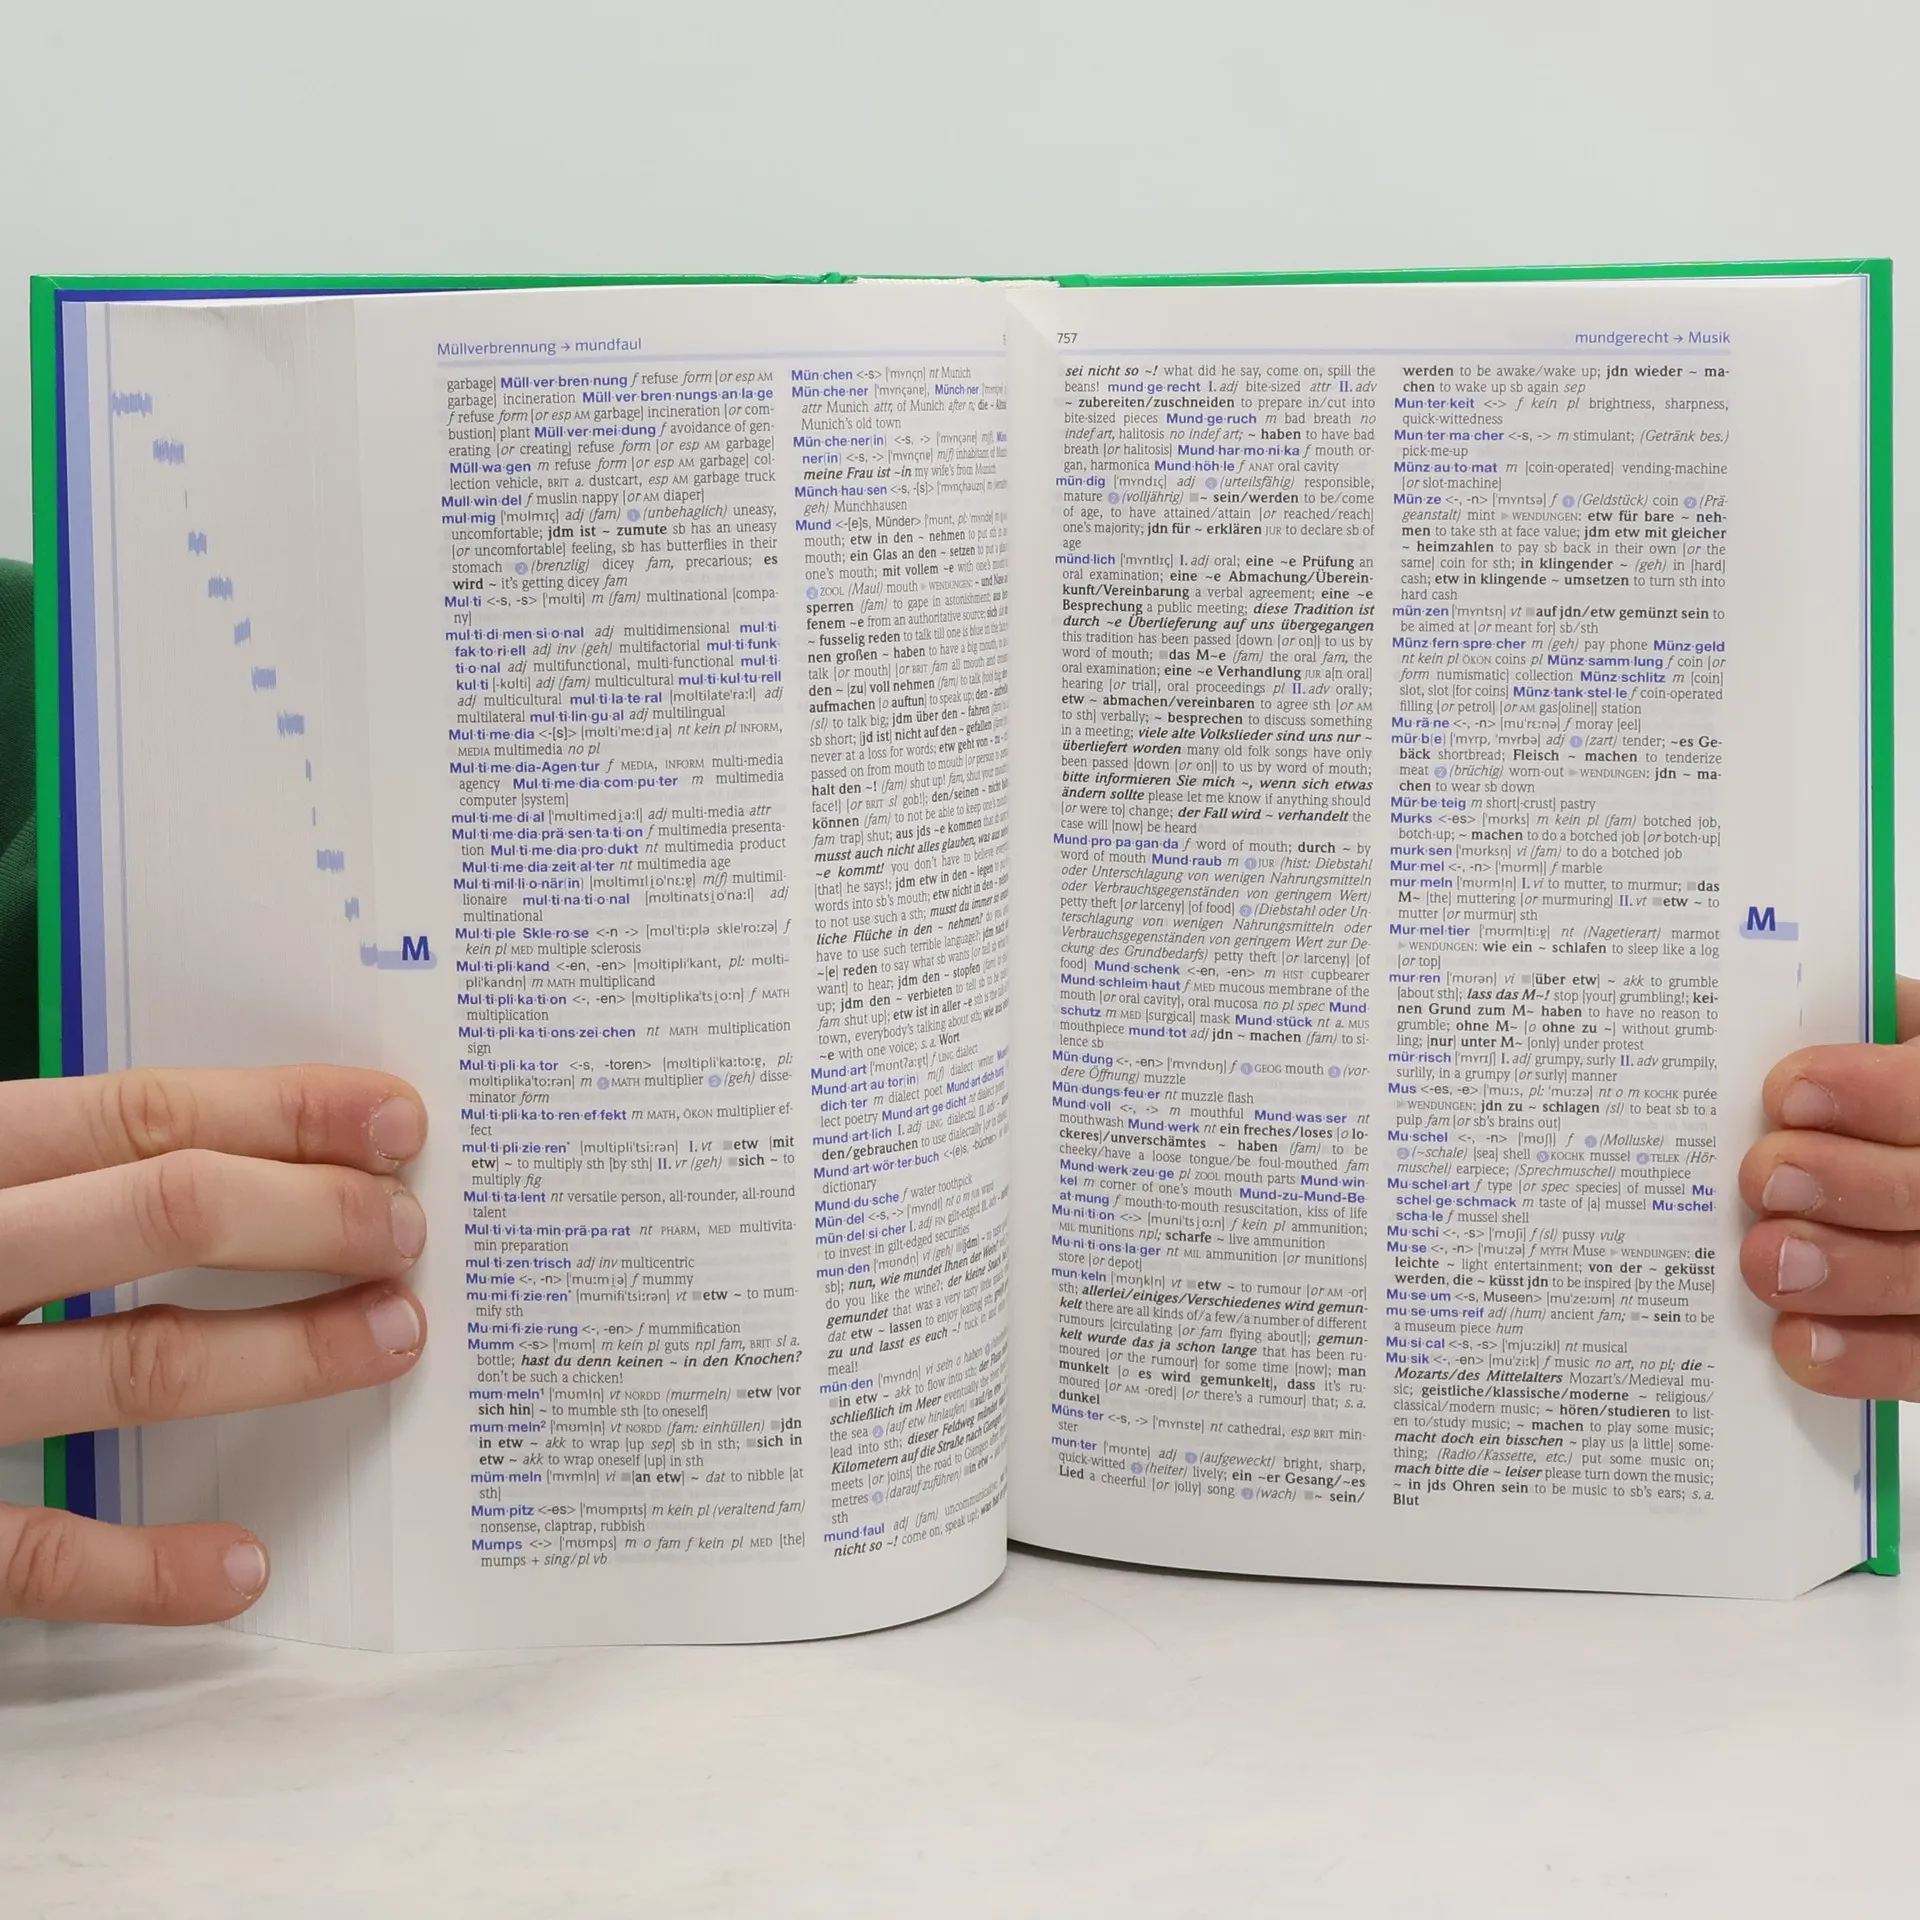 Müllverbrennung → mundfaul
garbage] Müll·ver·bren·nung f refuse form [or esp AM
garbage] incineration Müll·ver·bren·nungs·an·la·ge
f refuse form [or esp AM garbage] incineration [or com-
bustion] plant Müll·ver·mei·dung f avoidance of gen-
erating [or creating] refuse form [or esp AM garbage]
Müll·wa·gen m refuse form [or esp AM garbage] col-
lection vehicle, BRIT a. dustcart, esp AM garbage truck
Mull·win·del f muslin nappy [or AM diaper]
mul·mig ['mʊlmɪç] adj (fam) ❶ (unbehaglich) uneasy,
uncomfortable; jdm ist ~ zumute sb has an uneasy
[or uncomfortable] feeling, sb has butterflies in their
stomach ❷ (brenzlig) dicey fam, precarious; es
wird ~ it's getting dicey fam
Mul·ti <-s, -s> ['mʊlti] m (fam) multinational [compa-
ny]
mul·ti·di·men·si·o·nal adj multidimensional mul·ti·
fak·to·ri·ell adj inv (geh) multifactorial mul·ti·funk·
ti·o·nal adj multifunctional, multi-functional mul·ti·
kul·ti [-kʊlti] adj (fam) multicultural mul·ti·kul·tu·rell
adj multicultural mul·ti·la·te·ral [mʊltilate'ra:l] adj
multilateral mul·ti·lin·gu·al adj multilingual
Mul·ti·me·dia <-[s]> [mʊlti'me:di̯a] nt kein pl INFORM,
MEDIA multimedia no pl
Mul·ti·me·dia-Agen·tur f MEDIA, INFORM multi-media
agency Mul·ti·me·dia·com·pu·ter m multimedia
computer [system]
mul·ti·me·di·al ['mʊltimedi̯a:l] adj multi-media attr
Mul·ti·me·dia·prä·sen·ta·ti·on f multimedia presenta-
tion Mul·ti·me·dia·pro·dukt nt multimedia product
Mul·ti·me·dia·zeit·al·ter nt multimedia age
Mul·ti·mil·li·o·när(in) [mʊltimɪli̯o'nɛ:ɐ̯] m(f) multimil-
lionaire mul·ti·na·ti·o·nal [mʊltinatsi̯o'na:l] adj
multinational
Mul·ti·ple Skle·ro·se <-n -> [mʊl'ti:plə skle'ro:zə] f
kein pl MED multiple sclerosis
Mul·ti·pli·kand <-en, -en> [mʊltipli'kant, pl: mʊlti-
pli'kandn̩] m MATH multiplicand
Mul·ti·pli·ka·ti·on <-, -en> [mʊltiplika'tsi̯o:n] f MATH
multiplication
Mul·ti·pli·ka·ti·ons·zei·chen nt MATH multiplication
sign
Mul·ti·pli·ka·tor <-s, -toren> [mʊltipli'ka:to:ɐ̯, pl:
mʊltiplika'to:rən] m ❶ MATH multiplier ❷ (geh) disse-
minator form
Mul·ti·pli·ka·to·ren·ef·fekt m MATH, ÖKON multiplier ef-
fect
mul·ti·pli·zie·ren* [mʊltipli'tsi:rən] I. vt ■etw [mit
etw] ~ to multiply sth [by sth] II. vr (geh) ■sich ~ to
multiply fig
Mul·ti·ta·lent nt versatile person, all-rounder, all-round
talent
Mul·ti·vi·ta·min·prä·pa·rat nt PHARM, MED multivita-
min preparation
mul·ti·zen·trisch adj inv multicentric
Mu·mie <-, -n> ['mu:mi̯ə] f mummy
mu·mi·fi·zie·ren* [mumifi'tsi:rən] vt ■etw ~ to mum-
mify sth
Mu·mi·fi·zie·rung <-, -en> f mummification
Mumm <-s> [mʊm] m kein pl guts npl fam, BRIT sl a.
bottle; hast du denn keinen ~ in den Knochen?
don't be such a chicken!
mum·meln¹ ['mʊml̩n] vt NORDD (murmeln) ■etw [vor
sich hin] ~ to mumble sth [to oneself]
mum·meln² ['mʊml̩n] vt NORDD (fam: einhüllen) ■jdn
in etw ~ akk to wrap [up sep] sb in sth; ■sich in
etw ~ akk to wrap oneself [up] in sth
müm·meln ['mʏml̩n] vi ■[an etw] ~ dat to nibble [at
sth]
Mum·pitz <-es> ['mʊmpɪts] m kein pl (veraltend fam)
nonsense, claptrap, rubbish
Mumps <-> ['mʊmps] m o fam f kein pl MED [the]
mumps + sing/pl vb
M
Mün·chen <-s> ['mʏnçn̩] nt Munich
Mün·che·ner ['mʏnçənɐ], Münch·ner
attr Munich attr, of Munich after n; die ~
Munich's old town
Mün·che·ner(in) <-s, -> ['mʏnçənɐ] m(f),
ner(in) <-s, -> ['mʏnçnɐ] m(f) inhabitant of
meine Frau ist ~in my wife's from Munich
Münch·hau·sen <-s, -[s]> ['mʏnçhauzn̩] m
geh) Munchhausen
Mund <-[e]s, Münder> ['mʊnt, pl: 'mʏndɐ] m
mouth; etw in den ~ nehmen to put sth in
mouth; ein Glas an den ~ setzen to put a
one's mouth; mit vollem ~e with one's mouth
❷ ZOOL (Maul) mouth ▶ WENDUNGEN: ~ und Nase
sperren (fam) to gape in astonishment; aus
fenem ~e from an authoritative source; sich
~ fusselig reden to talk till one is blue in the
nen großen ~ haben to have a big mouth, to
talk [or mouth] [or BRIT fam all mouth and
den ~ [zu] voll nehmen (fam) to talk [too] big
aufmachen [o auftun] to speak up; den ~
(sl) to talk big; jdm über den ~ fahren
sb short; [jd ist] nicht auf den ~ gefallen
never at a loss for words; etw geht von ~ zu ~
passed on from mouth to mouth [or person to
halt den ~! (fam) shut up! fam, shut your
face!] [or BRIT sl gob!]; den/seinen ~ nicht
können (fam) to not be able to keep one's
fam trap] shut; aus jds ~e kommen
musst auch nicht alles glauben, was aus
~e kommt! you don't have to believe
[that] he says!; jdm etw in den ~ legen to
words into sb's mouth; etw nicht in den ~
to not use such a sth; musst du immer so
liche Flüche in den ~ nehmen? do you
have to use such terrible language?; jdm nach
~[e] reden to say what sb wants [or
want] to hear; jdm den ~ stopfen (fam)
up; jdm den ~ verbieten to tell sb to
fam shut up]; etw ist in aller ~e sth is the
town, everybody's talking about sth; wie
~e with one voice; s. a. Wort
Mund·art ['mʊntʔa:ɐ̯t] f LING dialect
Mund·art·au·tor(in) m(f) dialect writer
dich·ter m dialect poet Mund·art·dich·tung
lect poetry Mund·art·ge·dicht nt dialect poem
mund·art·lich I. adj LING dialectal II. adv
den/gebrauchen to use dialectally
Mund·art·wör·ter·buch <-(e)s, -bücher>
dictionary
Mund·du·sche f water toothpick
Mün·del <-s, -> ['mʏndl̩] nt o m JUR ward
mün·del·si·cher I. adj FIN gilt-edged II. adv
to invest in gilt-edged securities
mun·den ['mʊndn̩] vi (geh) ■[jdm] ~
sb]; nun, wie mundet Ihnen der Wein?
do you like the wine?; der kleine Snack
gemundet that was a very tasty
dat etw ~ lassen to enjoy [eating] sth;
zu und lasst es euch ~! tuck in and
meal!
mün·den ['mʏndn̩] vi sein o haben
■in etw ~ akk to flow into sth; der
schließlich im Meer eventually the
the sea ❷ (auf etw hinlaufen)
lead into sth; dieser Feldweg mündet
Kilometern auf die Straße nach Giengen
meets [or joins] the road to Giengen
metres ❸ (darauf zuführen) ■in etw ~
sth
mund·faul adj (fam) uncommunicative;
nicht so ~! come on, speak up!;
757
mundgerecht → Musik
sei nicht so ~! what did he say, come on, spill the
beans! mund·ge·recht I. adj bite-sized attr II. adv
~ zubereiten/zuschneiden to prepare in/cut into
bite-sized pieces Mund·ge·ruch m bad breath no
indef art, halitosis no indef art; ~ haben to have bad
breath [or halitosis] Mund·har·mo·ni·ka f mouth or-
gan, harmonica Mund·höh·le f ANAT oral cavity
mün·dig ['mʏndɪç] adj ❶ (urteilsfähig) responsible,
mature ❷ (volljährig) ■~ sein/werden to be/come
of age, to have attained/attain [or reached/reach]
one's majority; jdn für ~ erklären JUR to declare sb of
age
münd·lich ['mʏntlɪç] I. adj oral; eine ~e Prüfung an
oral examination; eine ~e Abmachung/Überein-
kunft/Vereinbarung a verbal agreement; eine ~e
Besprechung a public meeting; diese Tradition ist
durch ~e Überlieferung auf uns übergegangen
this tradition has been passed [down [or on]] to us by
word of mouth; ■das M~e (fam) the oral fam, the
oral examination; eine ~e Verhandlung JUR a[n oral]
hearing [or trial], oral proceedings pl II. adv orally;
etw ~ abmachen/vereinbaren to agree sth [or AM
to sth] verbally; ~ besprechen to discuss something
in a meeting; viele alte Volkslieder sind uns nur ~
überliefert worden many old folk songs have only
been passed [down [or on]] to us by word of mouth;
bitte informieren Sie mich ~, wenn sich etwas
ändern sollte please let me know if anything should
[or were to] change; der Fall wird ~ verhandelt the
case will [now] be heard
Mund·pro·pa·gan·da f word of mouth; durch ~ by
word of mouth Mund·raub m ❶ JUR (hist: Diebstahl
oder Unterschlagung von wenigen Nahrungsmitteln
oder Verbrauchsgegenständen von geringem Wert)
petty theft [or larceny] [of food] ❷ (Diebstahl oder Un-
terschlagung von wenigen Nahrungsmitteln oder
Verbrauchsgegenständen von geringem Wert zur De-
ckung des Grundbedarfs) petty theft [or larceny] [of
food] Mund·schenk <-en, -en> m HIST cupbearer
Mund·schleim·haut f MED mucous membrane of the
mouth [or oral cavity], oral mucosa no pl spec Mund·
schutz m MED [surgical] mask Mund·stück nt a. MUS
mouthpiece mund·tot adj jdn ~ machen (fam) to si-
lence sb
Mün·dung <-, -en> ['mʏndʊŋ] f ❶ GEOG mouth ❷ (vor-
dere Öffnung) muzzle
Mün·dungs·feu·er nt muzzle flash
Mund·voll <-, -> m mouthful Mund·was·ser nt
mouthwash Mund·werk nt ein freches/loses [o lo-
ckeres]/unverschämtes ~ haben (fam) to be
cheeky/have a loose tongue/be foul-mouthed fam
Mund·werk·zeu·ge pl ZOOL mouth parts Mund·win·
kel m corner of one's mouth Mund-zu-Mund-Be·
at·mung f mouth-to-mouth resuscitation, kiss of life
Mu·ni·ti·on <-> [muni'tsi̯o:n] f kein pl ammunition;
MIL munitions npl; scharfe ~ live ammunition
Mu·ni·ti·ons·la·ger nt MIL ammunition [or munitions]
store [or depot]
mun·keln ['mʊŋkl̩n] vt ■etw ~ to rumour [or AM -or]
sth; allerlei/einiges/Verschiedenes wird gemun-
kelt there are all kinds of/a few/a number of different
rumours [circulating [or fam flying about]]; gemun-
kelt wurde das ja schon lange that has been ru-
moured [or the rumour] for some time [now]; man
munkelt [o es wird gemunkelt], dass it's ru-
moured [or AM -ored] [or there's a rumour] that; s. a.
dunkel
Müns·ter <-s, -> ['mʏnstɐ] nt cathedral, esp BRIT min-
ster
mun·ter ['mʊntɐ] adj ❶ (aufgeweckt) bright, sharp,
quick-witted ❷ (heiter) lively; ein ~er Gesang/~es
Lied a cheerful [or jolly] song ❸ (wach) ■~ sein/
werden to be awake/wake up; jdn wieder ~ ma-
chen to wake up sb again sep
Mun·ter·keit <-> f kein pl brightness, sharpness,
quick-wittedness
Mun·ter·ma·cher <-s, -> m stimulant; (Getränk bes.)
pick-me-up
Münz·au·to·mat m [coin-operated] vending-machine
[or slot-machine]
Mün·ze <-, -n> ['mʏntsə] f ❶ (Geldstück) coin ❷ (Prä-
geanstalt) mint ▶ WENDUNGEN: etw für bare ~ neh-
men to take sth at face value; jdm etw mit gleicher
~ heimzahlen to pay sb back in their own [or the
same] coin for sth; in klingender ~ (geh) in [hard]
cash; etw in klingende ~ umsetzen to turn sth into
hard cash
mün·zen ['mʏntsn̩] vt ■auf jdn/etw gemünzt sein to
be aimed at [or meant for] sb/sth
Münz·fern·spre·cher m (geh) pay phone Münz·geld
nt kein pl ÖKON coins pl Münz·samm·lung f coin [or
form numismatic] collection Münz·schlitz m [coin]
slot, slot [for coins] Münz·tank·stel·le f coin-operated
filling [or petrol] [or AM gas[oline]] station
Mu·rä·ne <-, -n> [mu'rɛ:nə] f moray [eel]
mür·b(e) ['mʏrp, 'mʏrbə] adj ❶ (zart) tender; ~es Ge-
bäck shortbread; Fleisch ~ machen to tenderize
meat ❷ (brüchig) worn-out ▶ WENDUNGEN: jdn ~ ma-
chen to wear sb down
Mür·be·teig m short[-crust] pastry
Murks <-es> ['mʊrks] m kein pl (fam) botched job,
botch-up; ~ machen to do a botched job [or botch-up]
murk·sen ['mʊrksn̩] vi (fam) to do a botched job
Mur·mel <-, -n> ['mʊrml̩] f marble
mur·meln ['mʊrml̩n] I. vi to mutter, to murmur; ■das
M~ [the] muttering [or murmuring] II. vt ■etw ~ to
mutter [or murmur] sth
Mur·mel·tier ['mʊrml̩ti:ɐ̯] nt (Nagetierart) marmot
▶ WENDUNGEN: wie ein ~ schlafen to sleep like a log
[or top]
mur·ren ['mʊrən] vi ■[über etw] ~ akk to grumble
[about sth]; lass das M~! stop [your] grumbling!; kei-
nen Grund zum M~ haben to have no reason to
grumble; ohne M~ [o ohne zu ~] without grumb-
ling; [nur] unter M~ [only] under protest
mür·risch ['mʏrɪʃ] I. adj grumpy, surly II. adv grumpily,
surlily, in a grumpy [or surly] manner
Mus <-es, -e> ['mu:s, pl: 'mu:zə] nt o m KOCHK purée
▶ WENDUNGEN: jdn zu ~ schlagen (sl) to beat sb to a
pulp fam [or sb's brains out]
Mu·schel <-, -n> ['mʊʃl̩] f ❶ (Molluske) mussel
❷ (~schale) [sea] shell ❸ KOCHK mussel ❹ TELEK (Hör-
muschel) earpiece; (Sprechmuschel) mouthpiece
Mu·schel·art f type [or spec species] of mussel Mu·
schel·ge·schmack m taste of [a] mussel Mu·schel·
scha·le f mussel shell
Mu·schi <-, -s> ['mʊʃi] f (sl) pussy vulg
Mu·se <-, -n> ['mu:zə] f MYTH Muse ▶ WENDUNGEN: die
leichte ~ light entertainment; von der ~ geküsst
werden, die ~ küsst jdn to be inspired [by the Muse]
Mu·se·um <-s, Museen> [mu'ze:ʊm] nt museum
mu·se·ums·reif adj (hum) ancient fam; ■~ sein to be
a museum piece hum
Mu·si·cal <-s, -s> ['mju:zikl̩] nt musical
Mu·sik <-, -en> [mu'zi:k] f music no art, no pl; die ~
Mozarts/des Mittelalters Mozart's/Medieval mu-
sic; geistliche/klassische/moderne ~ religious/
classical/modern music; ~ hören/studieren to list-
en to/study music; ~ machen to play some music;
macht doch ein bisschen ~ play us [a little] some-
thing; (Radio/Kassette, etc.) put some music on;
mach bitte die ~ leiser please turn down the music;
~ in jds Ohren sein to be music to sb's ears; s. a.
Blut
M